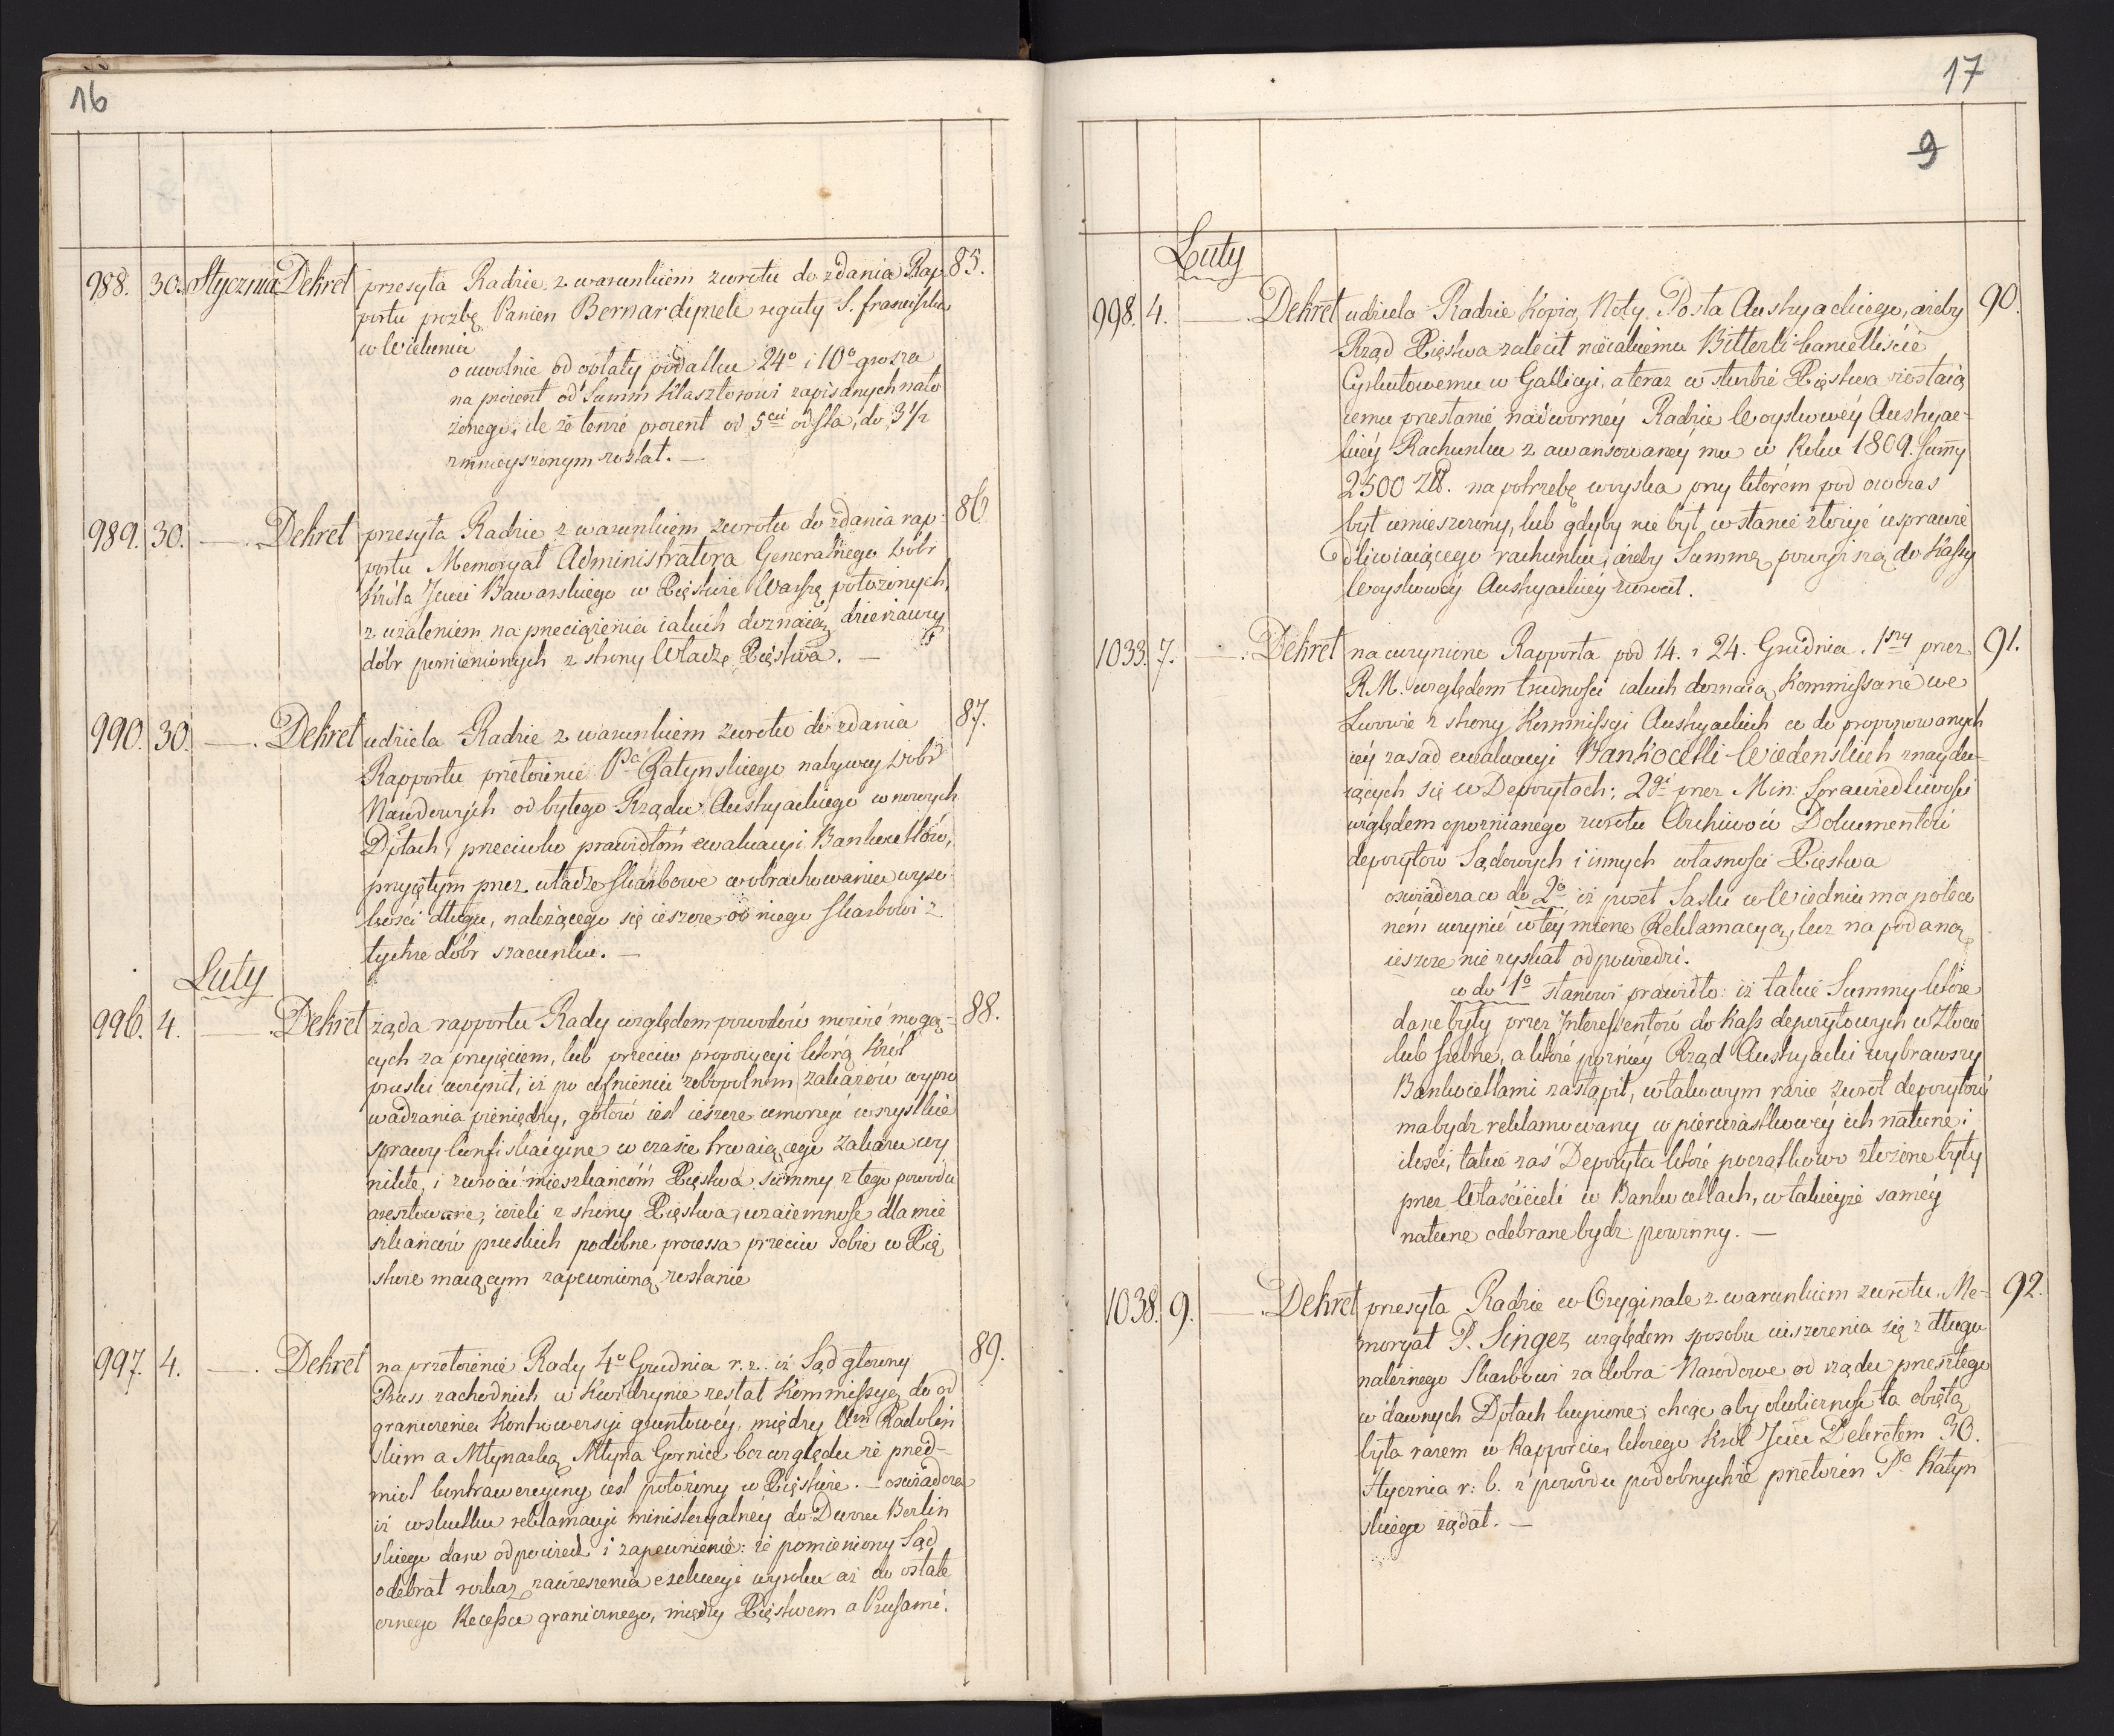 16
988. 30. Stycznia Dekret przesyła Radzie z warunkiem zwrotu do zdania Rap- 85.
portu prozbę Panien Bernardynek reguły S. franciszka
w Wieluniu
o uwolnie od opłaty podatku 24º i 10º grosza
na procent od Summ Klasztorowi zapisanych nało
żonego, ile że tenże procent od 5ciu od sta, do 3 1/2
zmnieyszonym został. —
989. 30. — . Dekret przesyła Radzie z warunkiem zwrotu do zdania rap- 86
portu Memoryał Administratora Generalnego Dóbr
Króla Jmci Bawarskiego w Xięstwie Warszą położonych,
z użaleniem na przeciążenia iakich doznaią dzierżawcy
dóbr pomienionych z strony Władzę Xięstwa. —
990. 30. — . Dekret udziela Radzie z warunkiem zwrotu do zdania 87.
Rapportu przełożenie Pa Ratynskiego nabywcy Dóbr
Narodowych od byłego Rządu Austryackiego w nowych
Dptach, przeciwko prawidłóm ewaluacyi Bankocetlów,
przyiętym przez władze skarbowe w obrachowaniu wyso
kości długu, należącego się ieszcze od niego skarbowi z
tychże dóbr szacunku. —
Luty
996. 4. — Dekret żąda rapportu Rady względem powodów mówić mogą- 88.
cych za przyięciem, lub przeciw propozycyi którą Król
pruski uczynił, iż po cofnieniu zobopolnem zakazów wypro
wadzania pieniędzy, gotów iest ieszcze umorzyć wszystkie
sprawy konfiskacyine w czasie trwaiącego zakazu wy
nikłe, i zwrócić mieszkańcóm Xięstwa summy z tego powodu
aresztowane, ieżeli z strony Xięstwa, wzaiemność dla mie
szkańców pruskich podobne processa przeciw sobie w Xię
stwie maiącym zapewnioną zostanie
997. 4. — . Dekret na przełożenie Rady 4º Grudnia r. z. iż Sąd głowny 89.
Pruss zachodnich w Kwidzynie zesłał Kommissyę do od
graniczenia Kontrowersyi gruntowéy, między Um Radoliń
skim a Młynarką Młyna Gornice bez względu że przed-
miot kontrawercyiny iest położony w Xięstwie. — oswiadcza
iż wskutku reklamacyi ministeryalnéy do Dworu Berlin
skiego dano odpowiedź i zapewnienie: że pomieniony Sąd
odebrał rozkaz zawieszenia exekucyi wyroku aż do ostate
cznego Recessu granicznego, między Xięstwem a Prusami.
17
9
Luty
998. 4. — . Dekret udziela Radzie Kopią Noty Posła Austryackiego, ażeby 90.
Rząd Xięstwa zalecił nieiakiemu Bitterli kancelliście
Cyrkułowemu w Gallicyi, a teraz w służbie Xięstwa zostaią
cemu przesłanie nadworney Radzie Woyskowéy Austryac-
kiéy Rachunku z awansowanéy mu w Roku 1809. summy
2500 ZłR. na potrzebę woyska przy którém pod owczas
był umieszczony, lub gdyby nie był w stanie złożyć usprawie
dliwiaiącego rachunku, ażeby Summę powyższą do Kassy
Woyskowéy Austryackiéy zwrócił.
1033. 7. — . Dekret na uczynione Rapporta pod 14. i 24. Grudnia. 1szy przez 91.
R.M. względem trudności iakich doznaią Kommissarze we
Lwowie z strony Kommissyi Austryackich co do proponowanych
iéy zasad ewaluacyi Bankocetli Wiedeńskich znaydu-
iących się w Depozytach; 2gi przez Min: Sprawiedliwości
względem opoznianego zwrotu Archiwów Dokumentów
depozytów Sądowych i innych własności Xięstwa
oswiadcza co do 2º iż poseł Saski w Wiedniu ma polece
ném uczynić w téy mierze Reklamacyą, lecz na podaną
ieszcze nie zyskał odpowiedzi.
co do 1º stanowi prawidło: iż takie Summy które
dane były przez Interessentów do Kass depozytowych w Złocie
lub srebrze, a które poźniéy Rząd Austryacki wybrawszy
Bankocetlami zastąpił, w takowym razie zwrot depozytów
ma bydz reklamowany w pierwiastkowéy ich naturze i
ilości, takie zas Depozyta które początkowo złożone były
przez Właścicieli w Bankocetlach, w takieyże saméy
naturze odebrane bydz powinny. —
1038. 9. — . Dekret przesyła Radzie w Oryginale z warunkiem zwrotu, Me- 92.
moryał P. Singer, względem sposobu uiszczenia się z długu
należnego Skarbowi za dobra Narodowe od rządu przeszłego
w dawnych Dptach kupione; chcąc aby okoliczność ta obiętą
była razem w Rapporcie, którego Król Jmć Dekretem 30.
Stycznia r: b. z powodu podobnychże przełożeń Pa Ratyn
skiego żądał. —